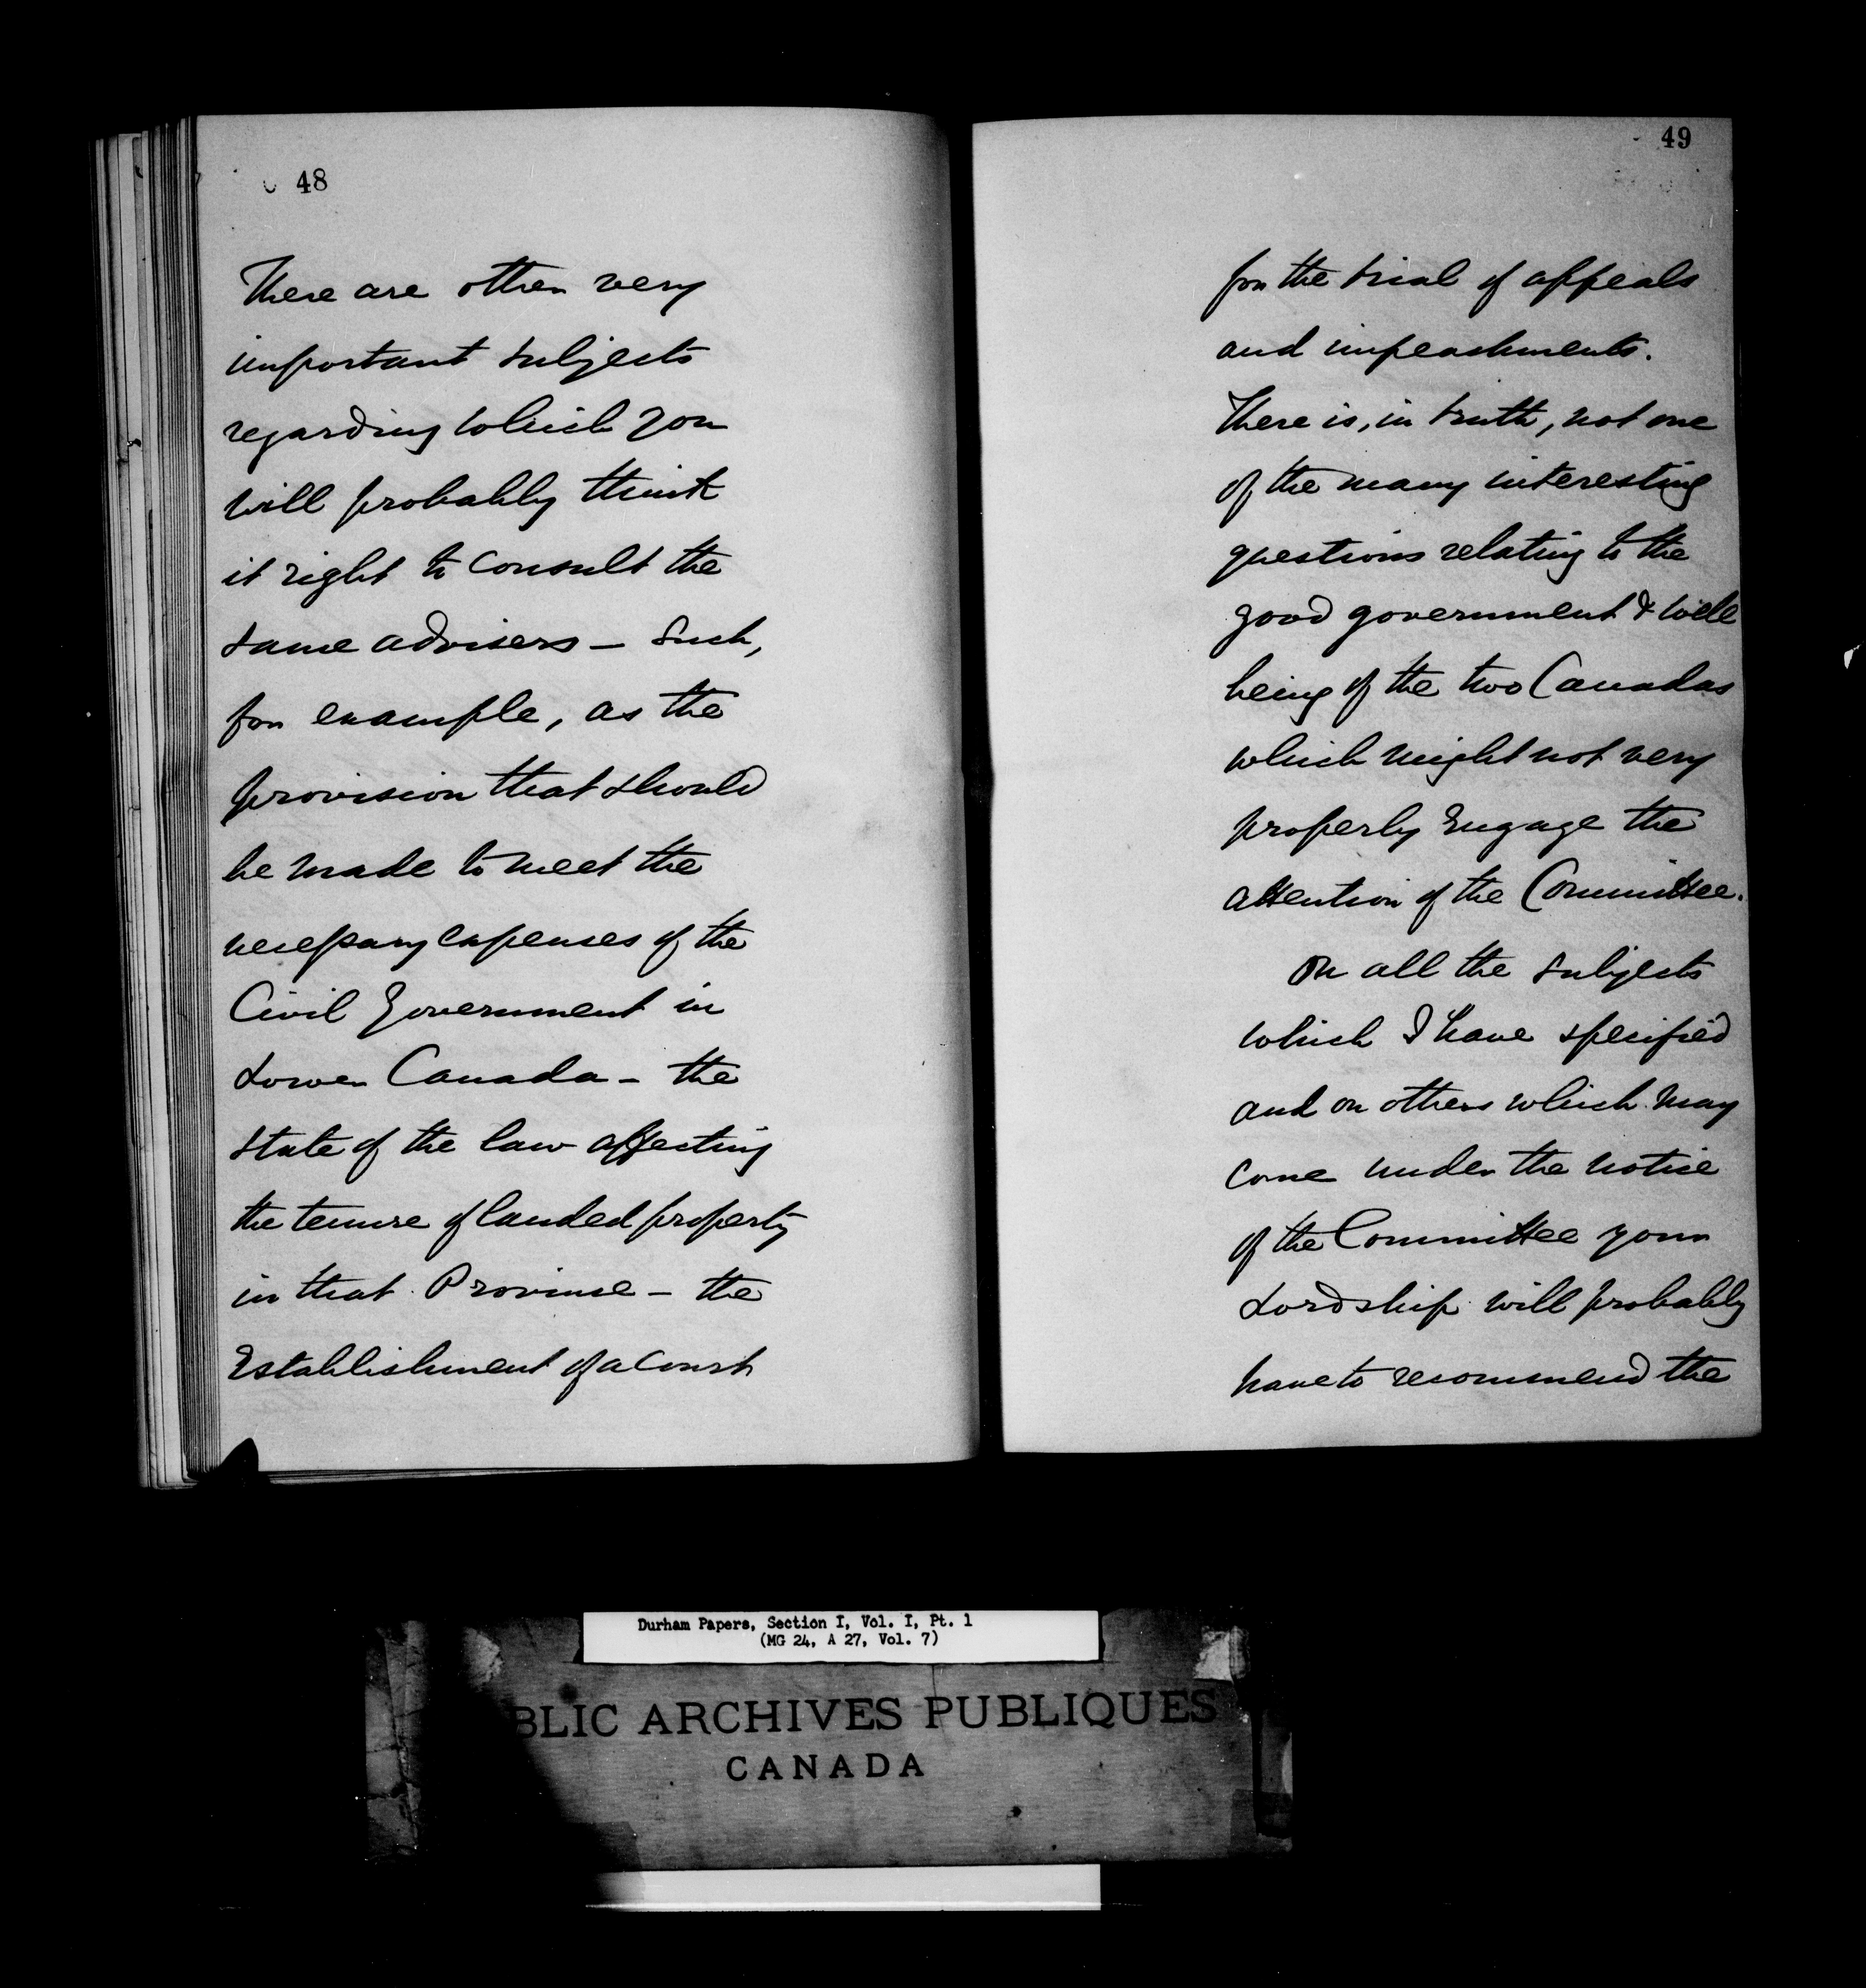 48
There are other very
important subjects
regarding which you
will probably think
it right to consult the
same advisers – such,
for example, as the
provision that should
be made to meet the
necessary expenses of the
Civil Government in
Lower Canada – the
state of the law affecting
the tenure of landed property
in that Province – the
Establishment of a Court
49
for the trial of appeals
and impeachments.
There is, in truth, not one
of the many interesting
questions relating to the
good government & well
being of the two Canadas
which might not very
properly Engage the
attention of the Committee.
On all the subjects
which I have specified
and on others which may
come under the notice
of the Committee your
Lordship will probably
have to recommend the
Durham Papers, Section I, Vol. I, Pt. 1
(MG 24, A 27, Vol. 7)
BLIC ARCHIVES PUBLIQUES
CANADA